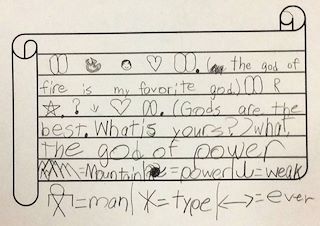 . ( the god of
fire is my favorite god.) R
? . (Gods are the
best. What's yours?) what,
the god of power
=Mountain| =power| =weak
=man| =type| =ever